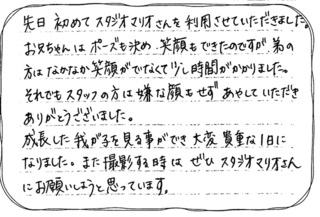 先日 初めて スタジオマリオさんを利用させていただきました。
お兄ちゃんは ポーズも決め、笑顔もできたのですが、弟の
方は なかなか 笑顔がでなくて少し時間がかかりました。
それでも スタッフの方は 嫌な顔もせず あやしていただき
ありがとうございました。
成長した 我が子を見る事ができ 大変 貴重な1日に
なりました。また撮影する時は ぜひ スタジオマリオさん
にお願いしようと思っています。